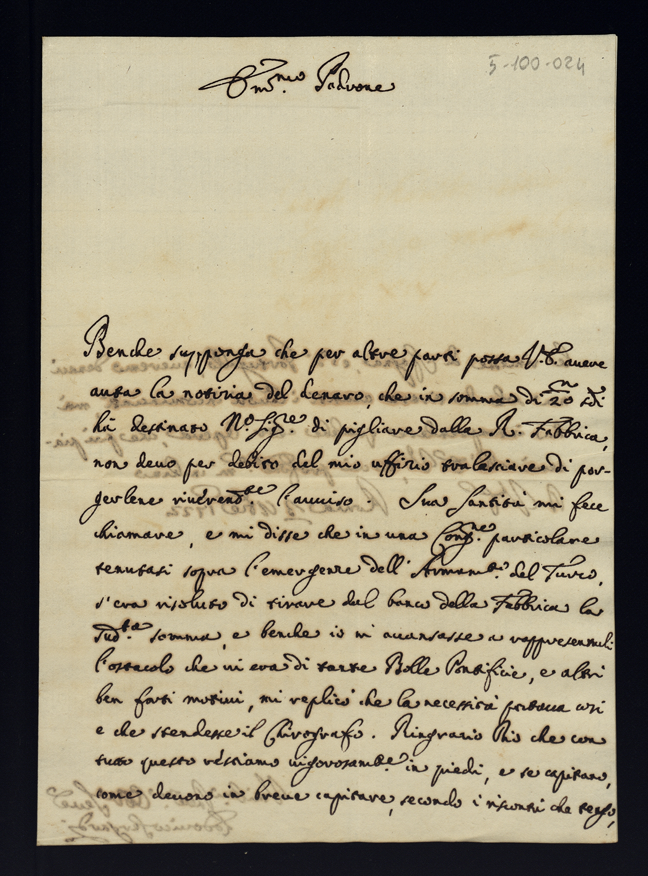 5-100-024
Em.mo Padrone
Benche suppongа che per altre parti possa V.E. avere
auta la notizia del denaro, che in somma di 20 m sdi
hà destinato N.ro Sig.re di pigliare dalla R. Fabbrica,
non devo per debito del mio uffizio tralasciare di por-
gerlene riverend.te l'avviso. Sua Santità mi fece
chiamare, e mi disse che in una Cong.ne particolare
tenutasi sopra l'emergenze dell'Armam.to del Turco,
s'era risoluto di tirare dal banco della Fabbrica la
sud.ta somma, e benche io mi avanzasse a rappresentarli
l'ostacolo che vi era di tante Bolle Pontificie, e altri
ben forti motivi, mi replicò che la necessità portava così
e che stendesse il Chirografo. Ringrazio Dio che con
tutto questo restiamo vigorosam.te in piedi, e se capitano,
come devono in breve capitare, secondo i riscontri che tengo,